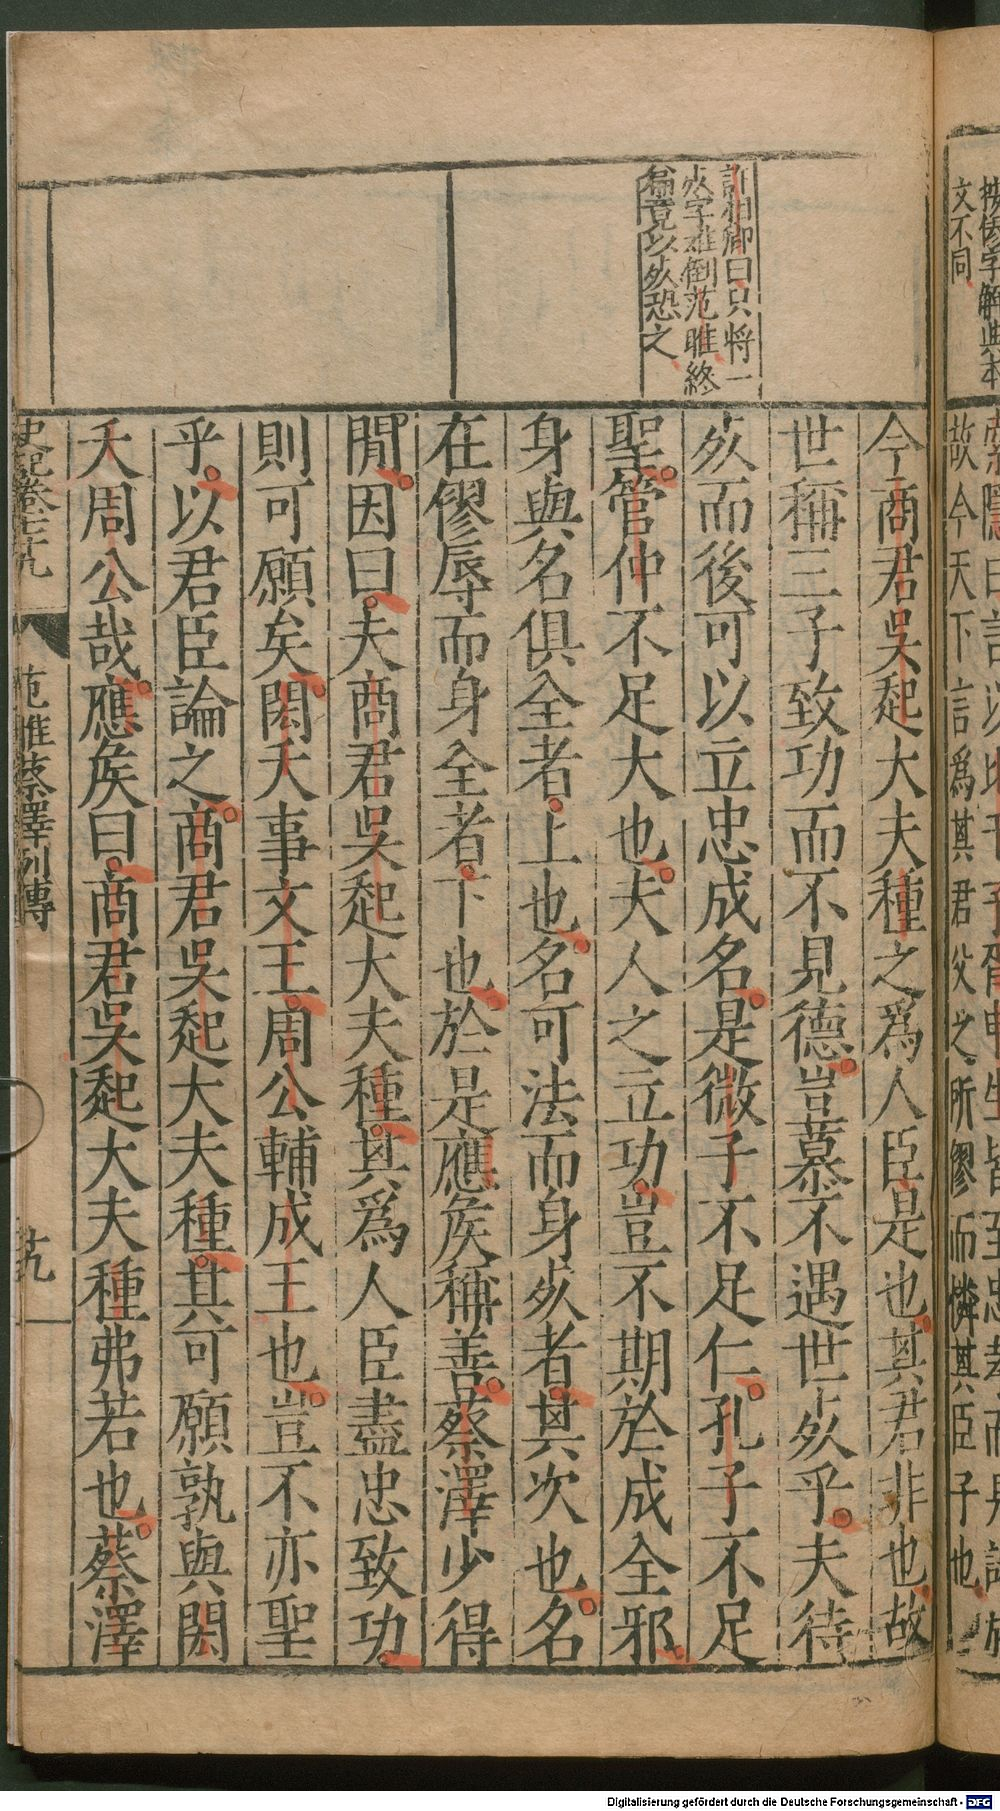 按繆字解與本
文不同
故今天下言為其君父之所僇而憐其臣子也
許相卿曰只將一
死字難倒范雎終
篇竟以死恐之
今商君吳起大夫種之為人臣是也其君非也故
世稱三子致功而不見德豈慕不遇世死乎夫待
死而後可以立忠成名是微子不足仁孔子不足
聖管仲不足大也夫人之立功豈不期於成全邪
身與名俱全者上也名可法而身死者其次也名
在僇辱而身全者下也於是應侯稱善蔡澤少得
閒因曰夫商君吳起大夫種其為人臣盡忠致功
則可願矣閎夭事文王周公輔成王也豈不亦聖
乎以君臣論之商君吳起大夫種其可願孰與閎
夭周公哉應侯曰商君吳起大夫種弗若也蔡澤
史記卷七十九 范雎蔡澤列傳 廿九
Digitalisierung gefördert durch die Deutsche Forschungsgemeinschaft - DFG